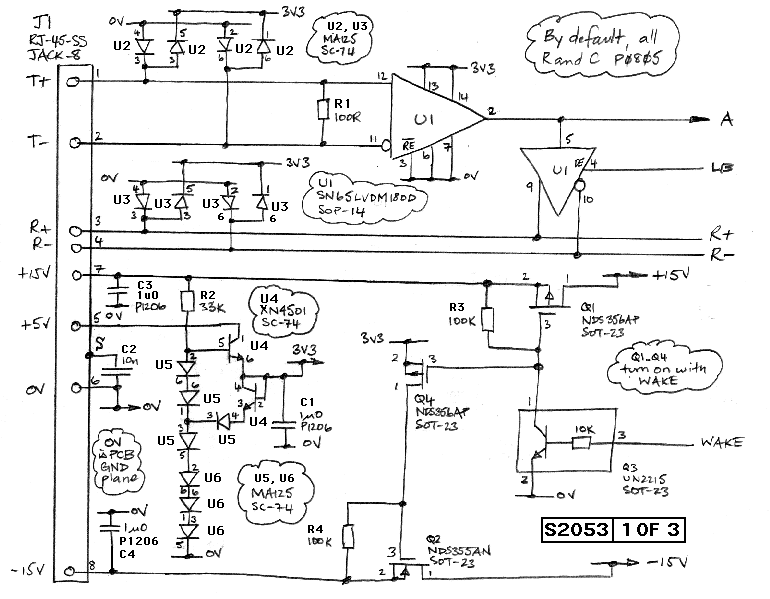 J1
RJ-45-SS
JACK-8
0V
3V3
U2 U2 U2 U2
4 5 2 1
3 3 6 6
U2, U3
MA125
SC-74
By default, all
R and C P0805
T+ 1
T- 2
R1
100R
12
11
U1
RE
13
14
3V3
3 6 7
0V
2
A
5
U1
RE 4
LB
9
10
0V
3V3
U3 U3 U3 U3
4 5 2 1
3 3 6 6
U1
SN65LVDM180D
SOP-14
R+ 3
R- 4
R+
R-
+15V 7
C3
1u0
P1206
0V
R2
33K
U4
XN4501
SC-74
R3
100K
2 1
3
+15V
Q1
NDS356AP
SOT-23
+5V 5
5
1
6
U4
3V3
S
C2
10n
0V 6
0V
U5
U5
U5
U5
4
2
3
U4
C1
1u0
P1206
0V
3V3
2
1
3
Q4
NDS356AP
SOT-23
Q1-Q4
turn on with
WAKE
1
10K
3
WAKE
2
0V
Q3
UN2215
SOT-23
0V
is PCB
GND
plane
U6
U6
U6
0V
U5, U6
MA125
SC-74
0V
1u0
P1206
C4
-15V 8
R4
100K
Q2
NDS355AN
SOT-23
3
2 1
-15V
S2053 1 OF 3